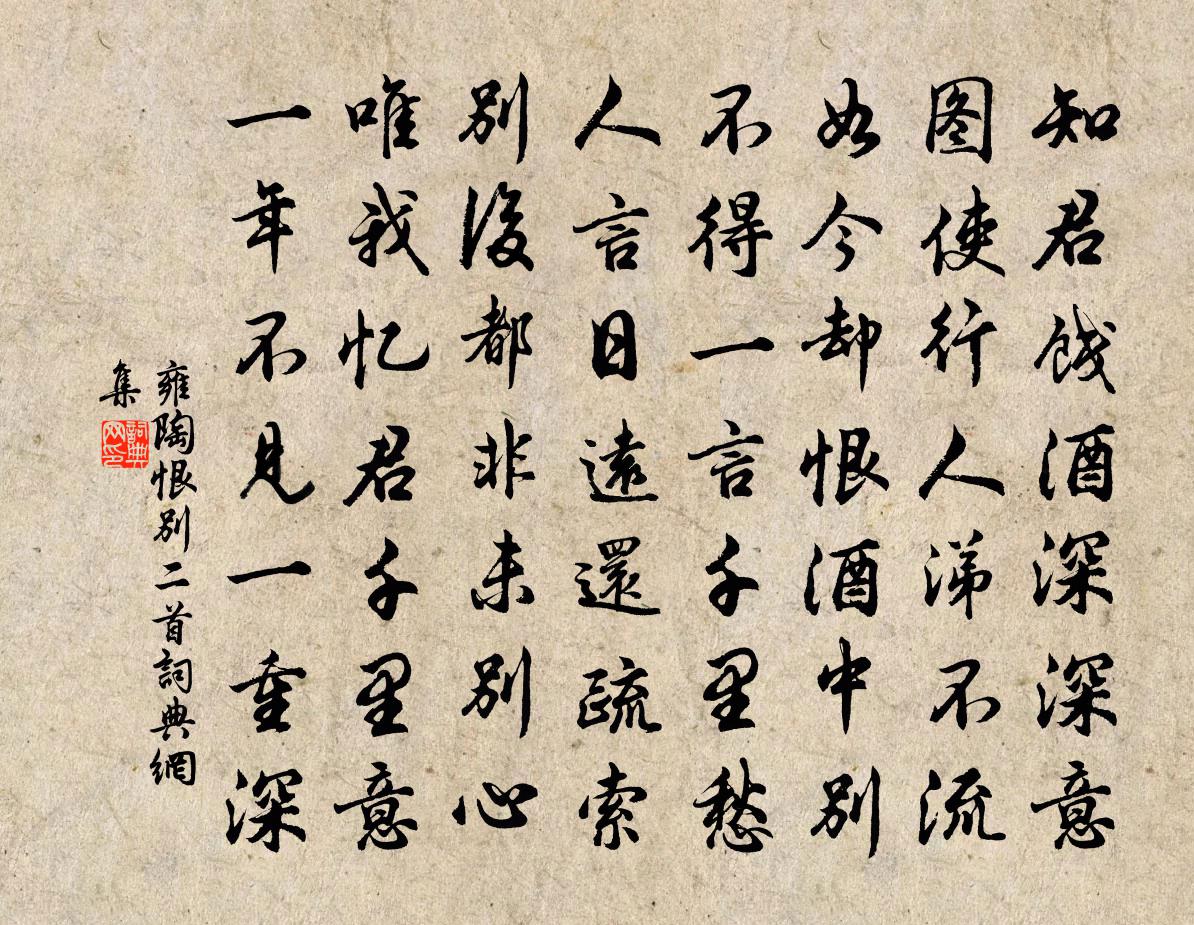 知君餞酒深深意
图使行人涕不流
如今却恨酒中別
不得一言千里愁
人言日遠還疏索
別後都非未別心
唯我忆君千里意
一年不見一重深
雍陶恨別二首詞典網
集
詞典
网印